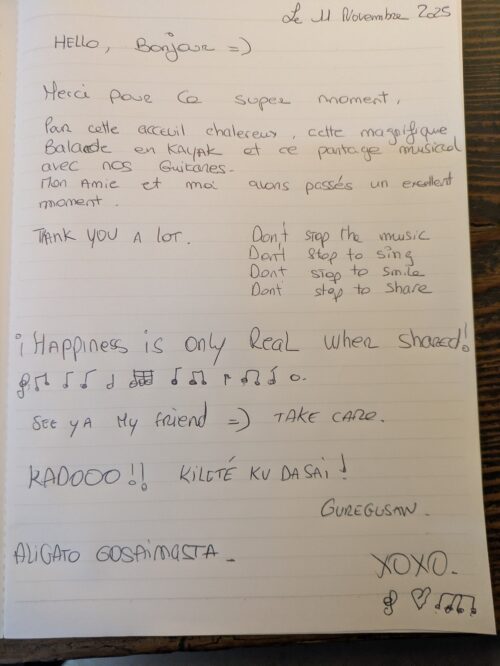 Le 11 Novembre 2025
HELLO, Bonjour =)
Merci pour ce super moment,
Par cette acceuil chalereux, cette magnifique
Balade en KAYAK et ce partage musical
avec nos Guitares.
Mon Amie et moi avons passés un excellent
moment.
THANK YOU A LOT.
Don't stop the music
Don't stop to sing
Dont stop to smile
Dont stop to share
¡ HAPPINESS is only Real when shared!
SEE YA My friend =) TAKE CARE.
KADOOO!! KILETÉ KUDASAI!
GUREGUSAN.
ALIGATO GOSAIMASTA.
XOXO.